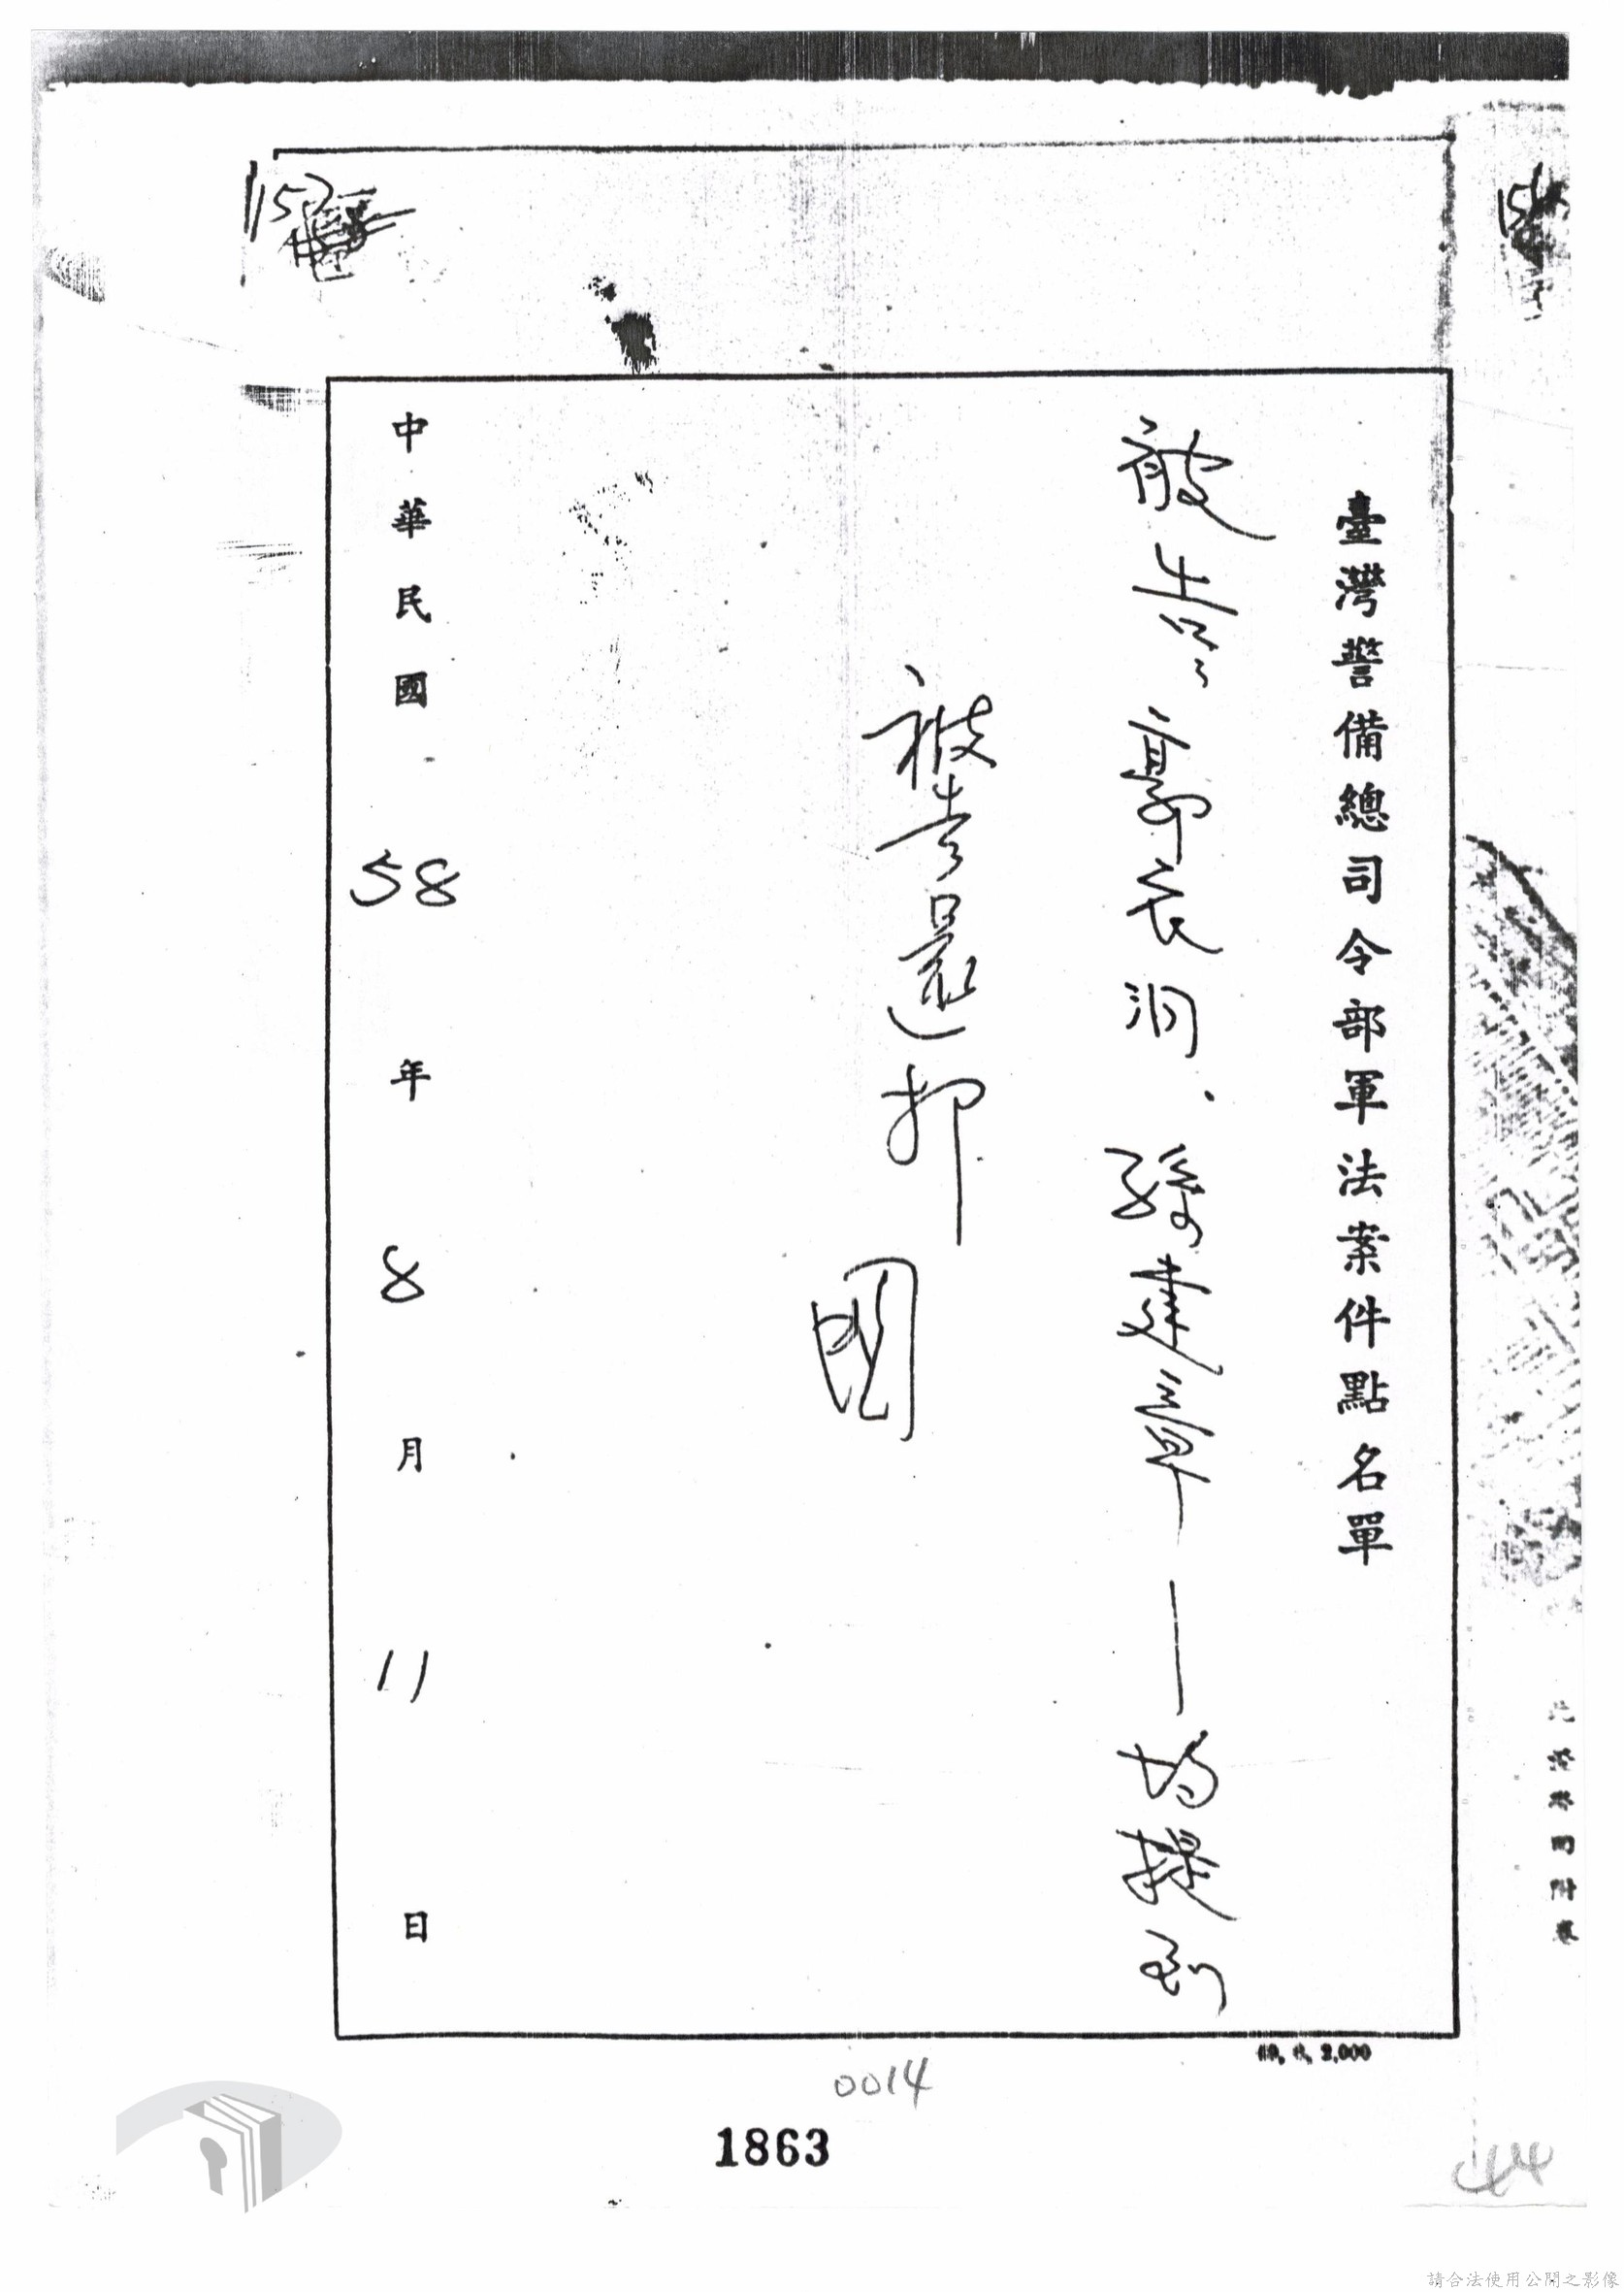 臺灣警備總司令部軍法案件點名單
被告 郭衣洞、孫建章——均提到
被告還押
中華民國 58 年 8 月 11 日
0014
1863
請合法使用公開之影像